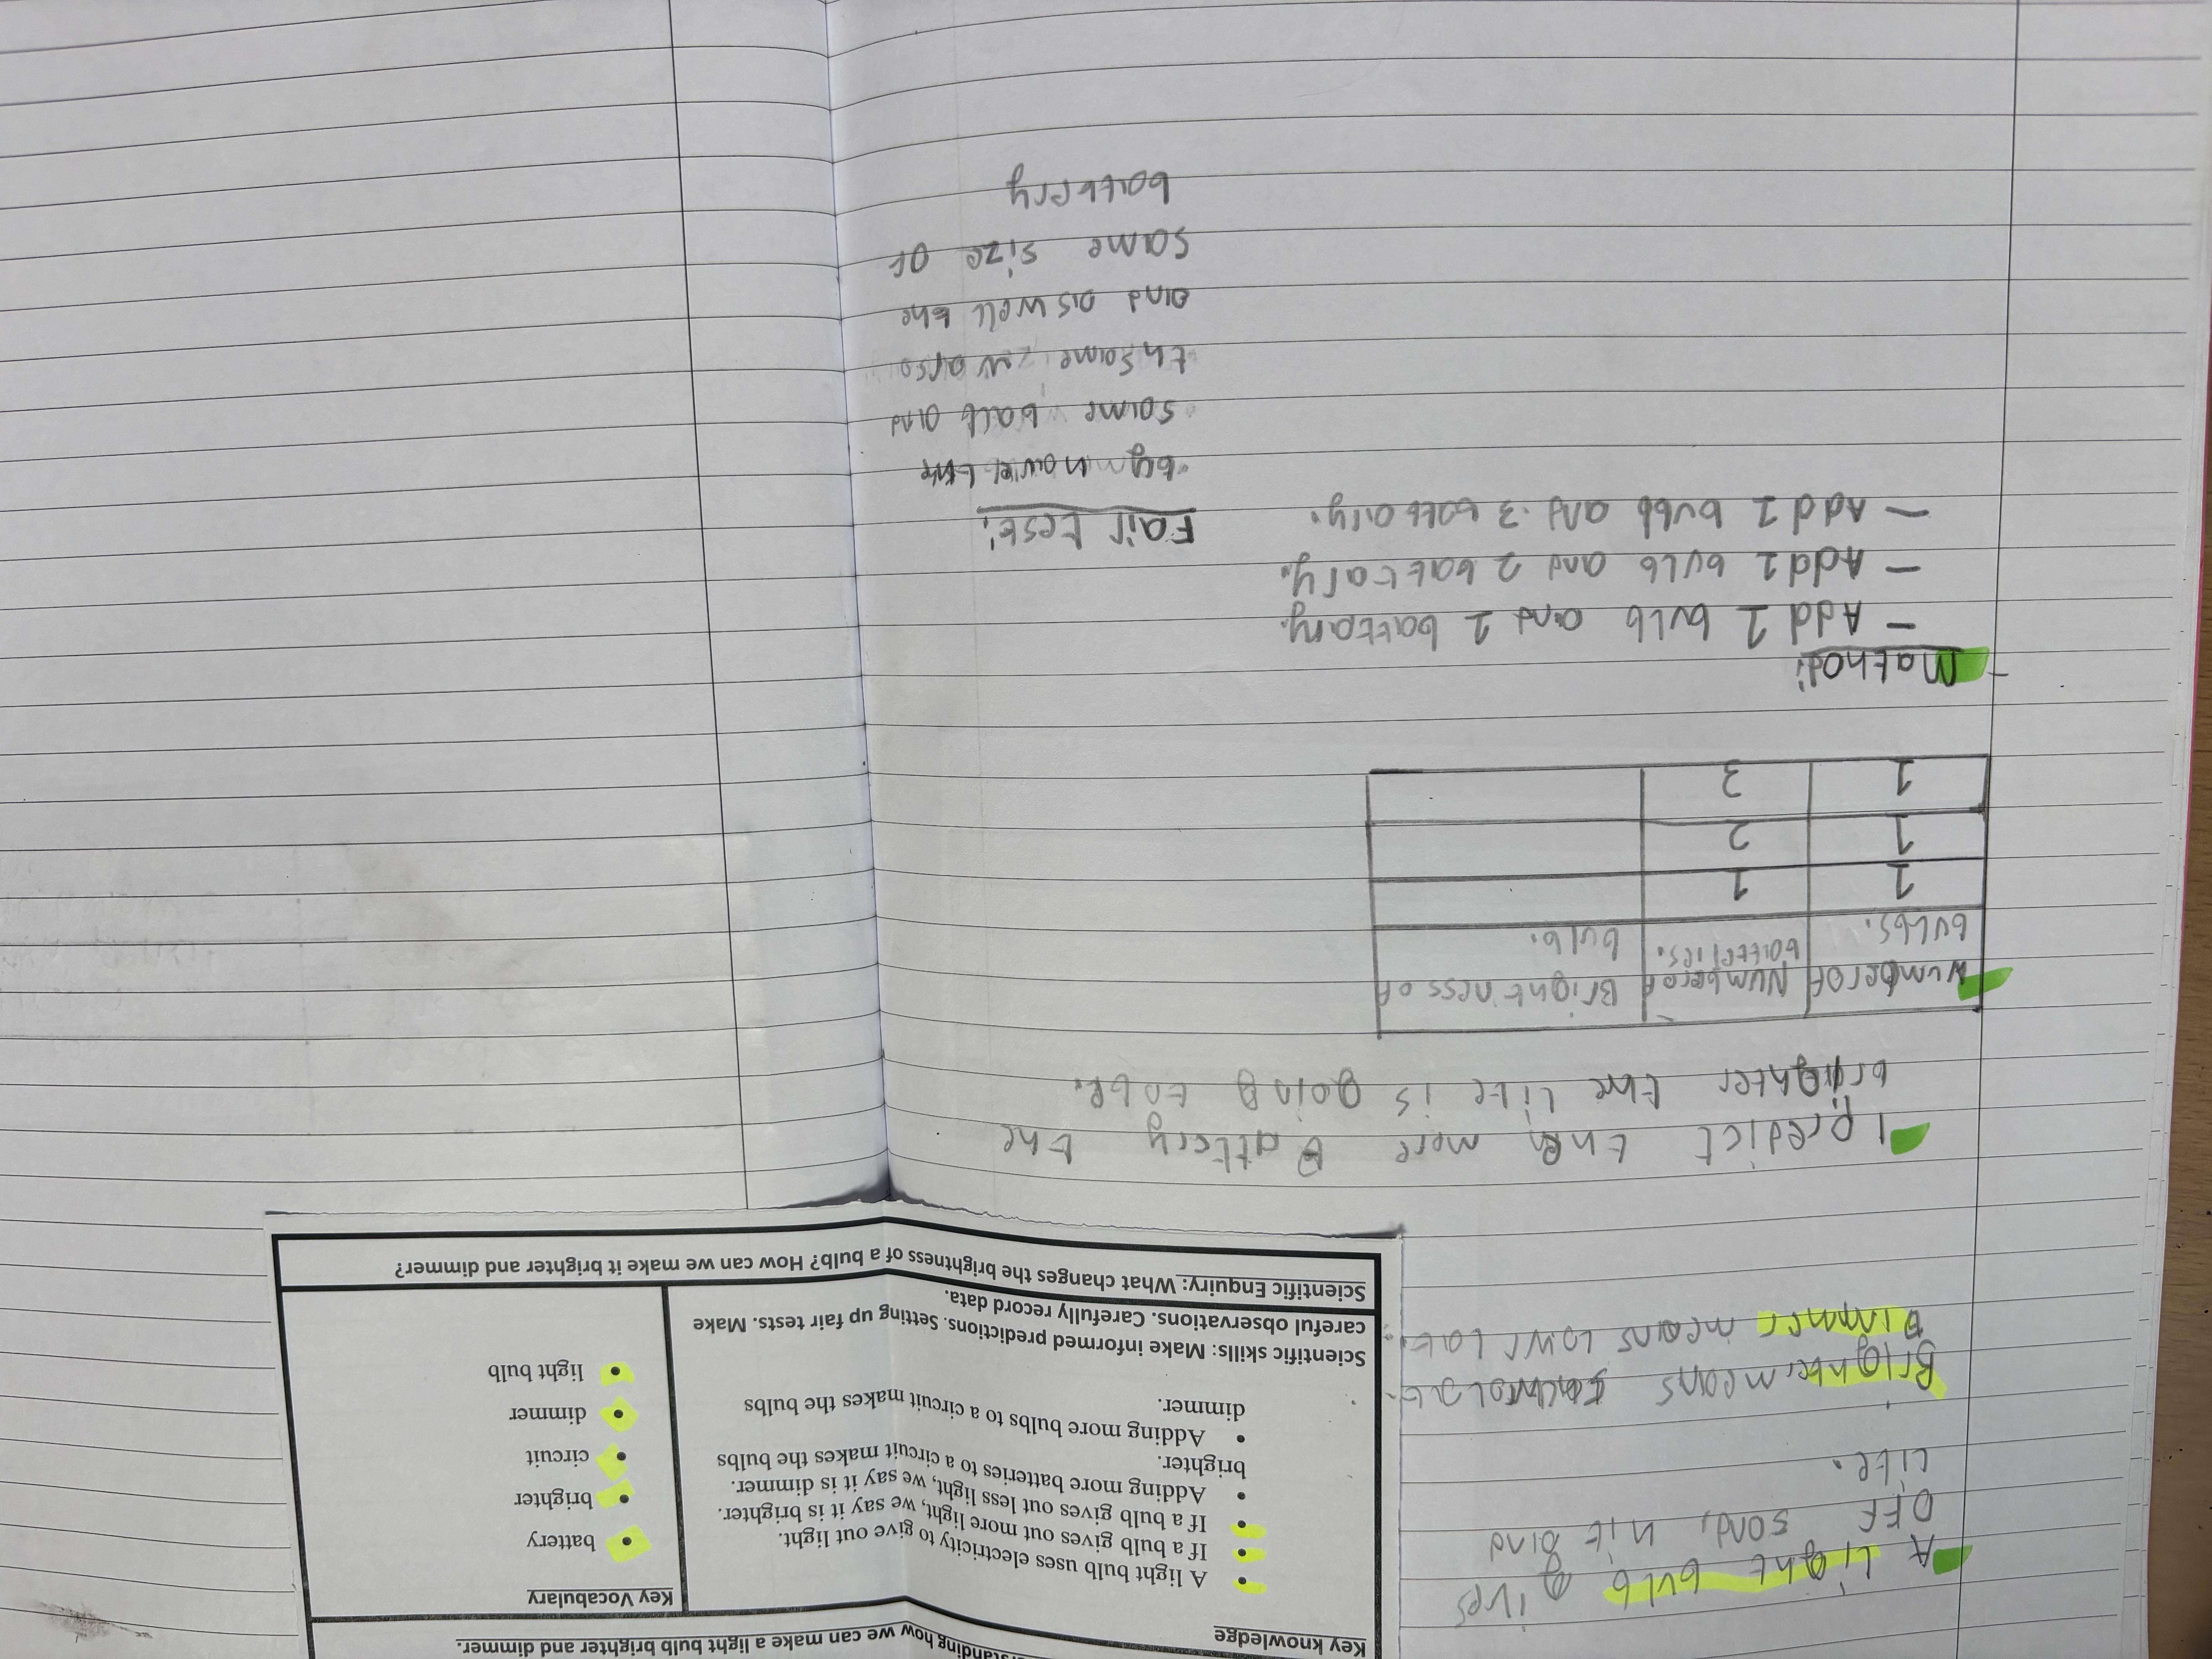 standing how we can make a light bulb brighter and dimmer.
Key knowledge
• A light bulb uses electricity to give out light.
• If a bulb gives out more light, we say it is brighter.
• If a bulb gives out less light, we say it is dimmer.
• Adding more batteries to a circuit makes the bulbs
brighter.
• Adding more bulbs to a circuit makes the bulbs
dimmer.
Key Vocabulary
• battery
• brighter
• circuit
• dimmer
• light bulb
Scientific skills: Make informed predictions. Setting up fair tests. Make
careful observations. Carefully record data.
Scientific Enquiry: What changes the brightness of a bulb? How can we make it brighter and dimmer?
A Light bulb gives
OFF sond, hit and
Lite.
Brighter means
Dimmer means
I predict the more Battery the
brighter the Lite is going to be.
Number of Number of Brightness of
bulbs. batteries. bulb.
1 1
1 2
1 3
Mathod:
- Add 1 bulb and 1 battary.
- Add 1 bulb and 2 battary.
- Add 1 bubb and 3 battary.
Fair test:
by
same balb and
th same
and as well the
same size of
battery